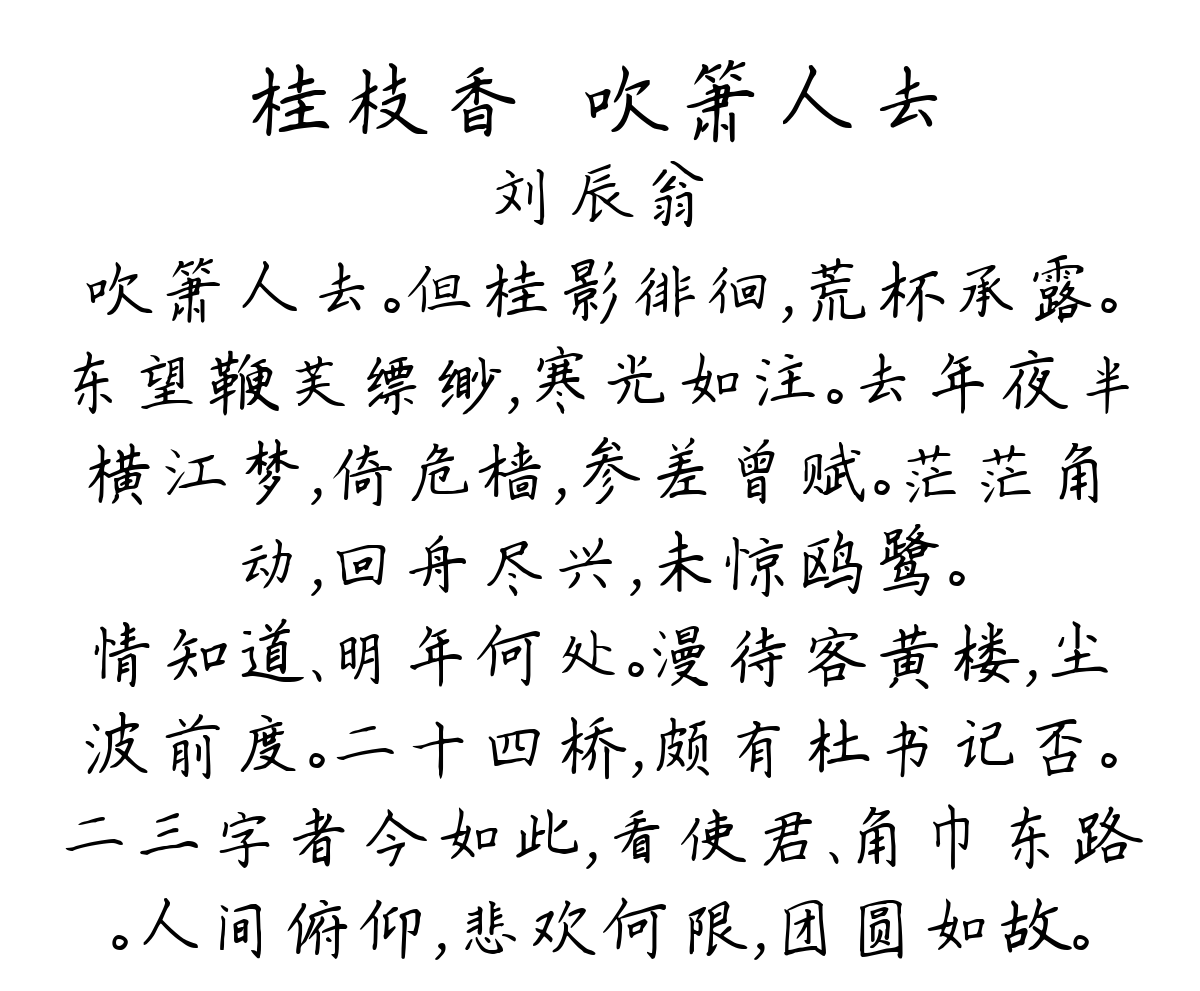 桂枝香 吹箫人去
刘辰翁
吹箫人去。但桂影徘徊,荒杯承露。
东望鞭芙缥缈,寒光如注。去年夜半
横江梦,倚危樯,参差曾赋。茫茫角
动,回舟尽兴,未惊鸥鹭。
情知道、明年何处。漫待客黄楼,尘
波前度。二十四桥,颇有杜书记否。
二三字者今如此,看使君、角巾东路
。人间俯仰,悲欢何限,团圆如故。